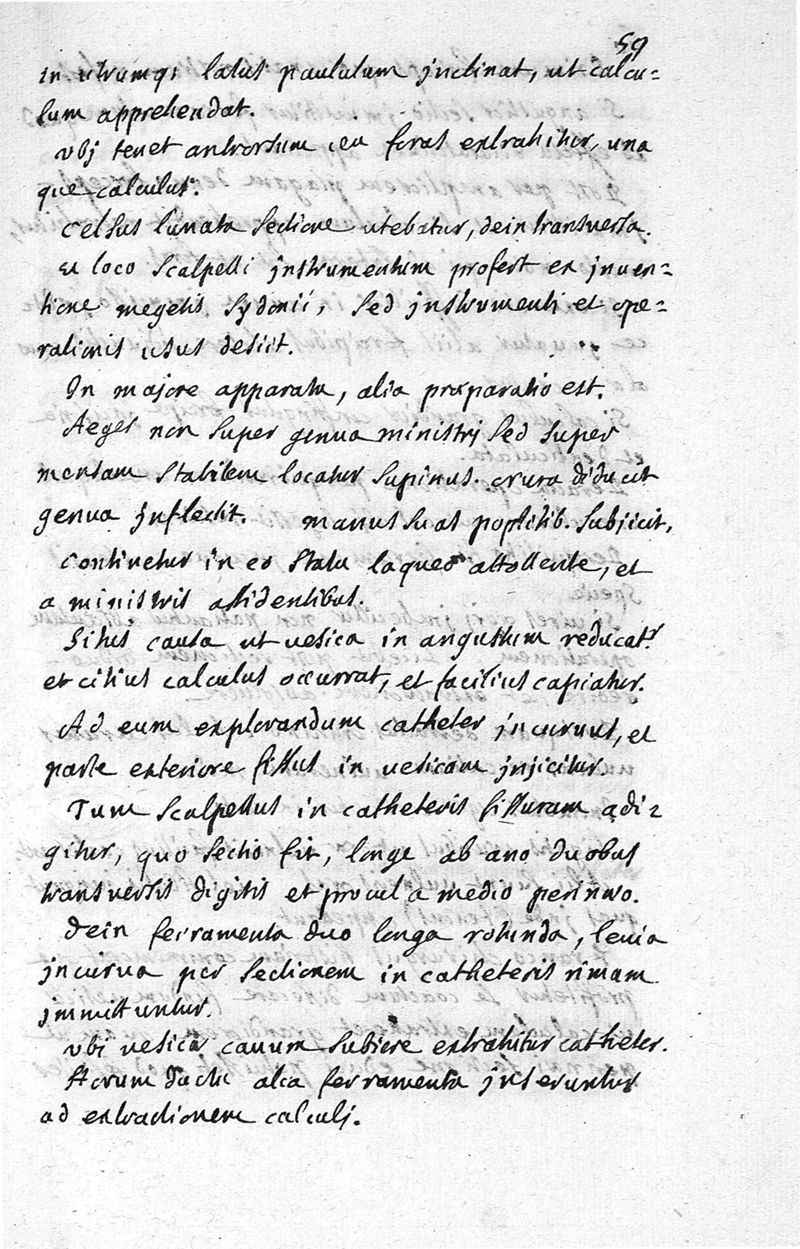 59
in utrumq; latus paululum jnclinat, ut calcu=
lum apprehendat.
vbj tenet antrorsum ceu foras extrahitur, una
que calculus.
Celsus lunata sectione utebatur, dein transversa.
et loco scalpelli jnstrumentum profert ex jnuen=
tione megetis Sydonii, sed jnstrumenti et ope=
rationis usus desiit.
In majore apparatu, alia præparatio est.
Aeger non super genua ministrj sed super
mensam stabilem locatur supinus. crura diducit
genua jnflectit. manus suas poplitib. subjicit,
continetur in eo statu laqueo attollente, et
a ministris assidentibus.
Situs causa ut vesica in angustum reducatr
et citius calculus occurrat, et facilius capiatur.
Ad eum explorandum catheter jncuruus, et
parte exteriore fissus in vesicam jnjicitur
Tum scalpellus in catheteris fissuram adi=
gitur, quo sectio fit, longe ab ano duobus
transversis digitis et procul a medio perinæo.
Dein ferramenta duo longa rotunda, leuia
jncurua per sectionem in catheteris rimam
jmmittuntur.
vbi vesicæ cauum subiere extrahitur catheter.
Horum ductu alia ferramenta jnseruntur
ad extractionem calculj.